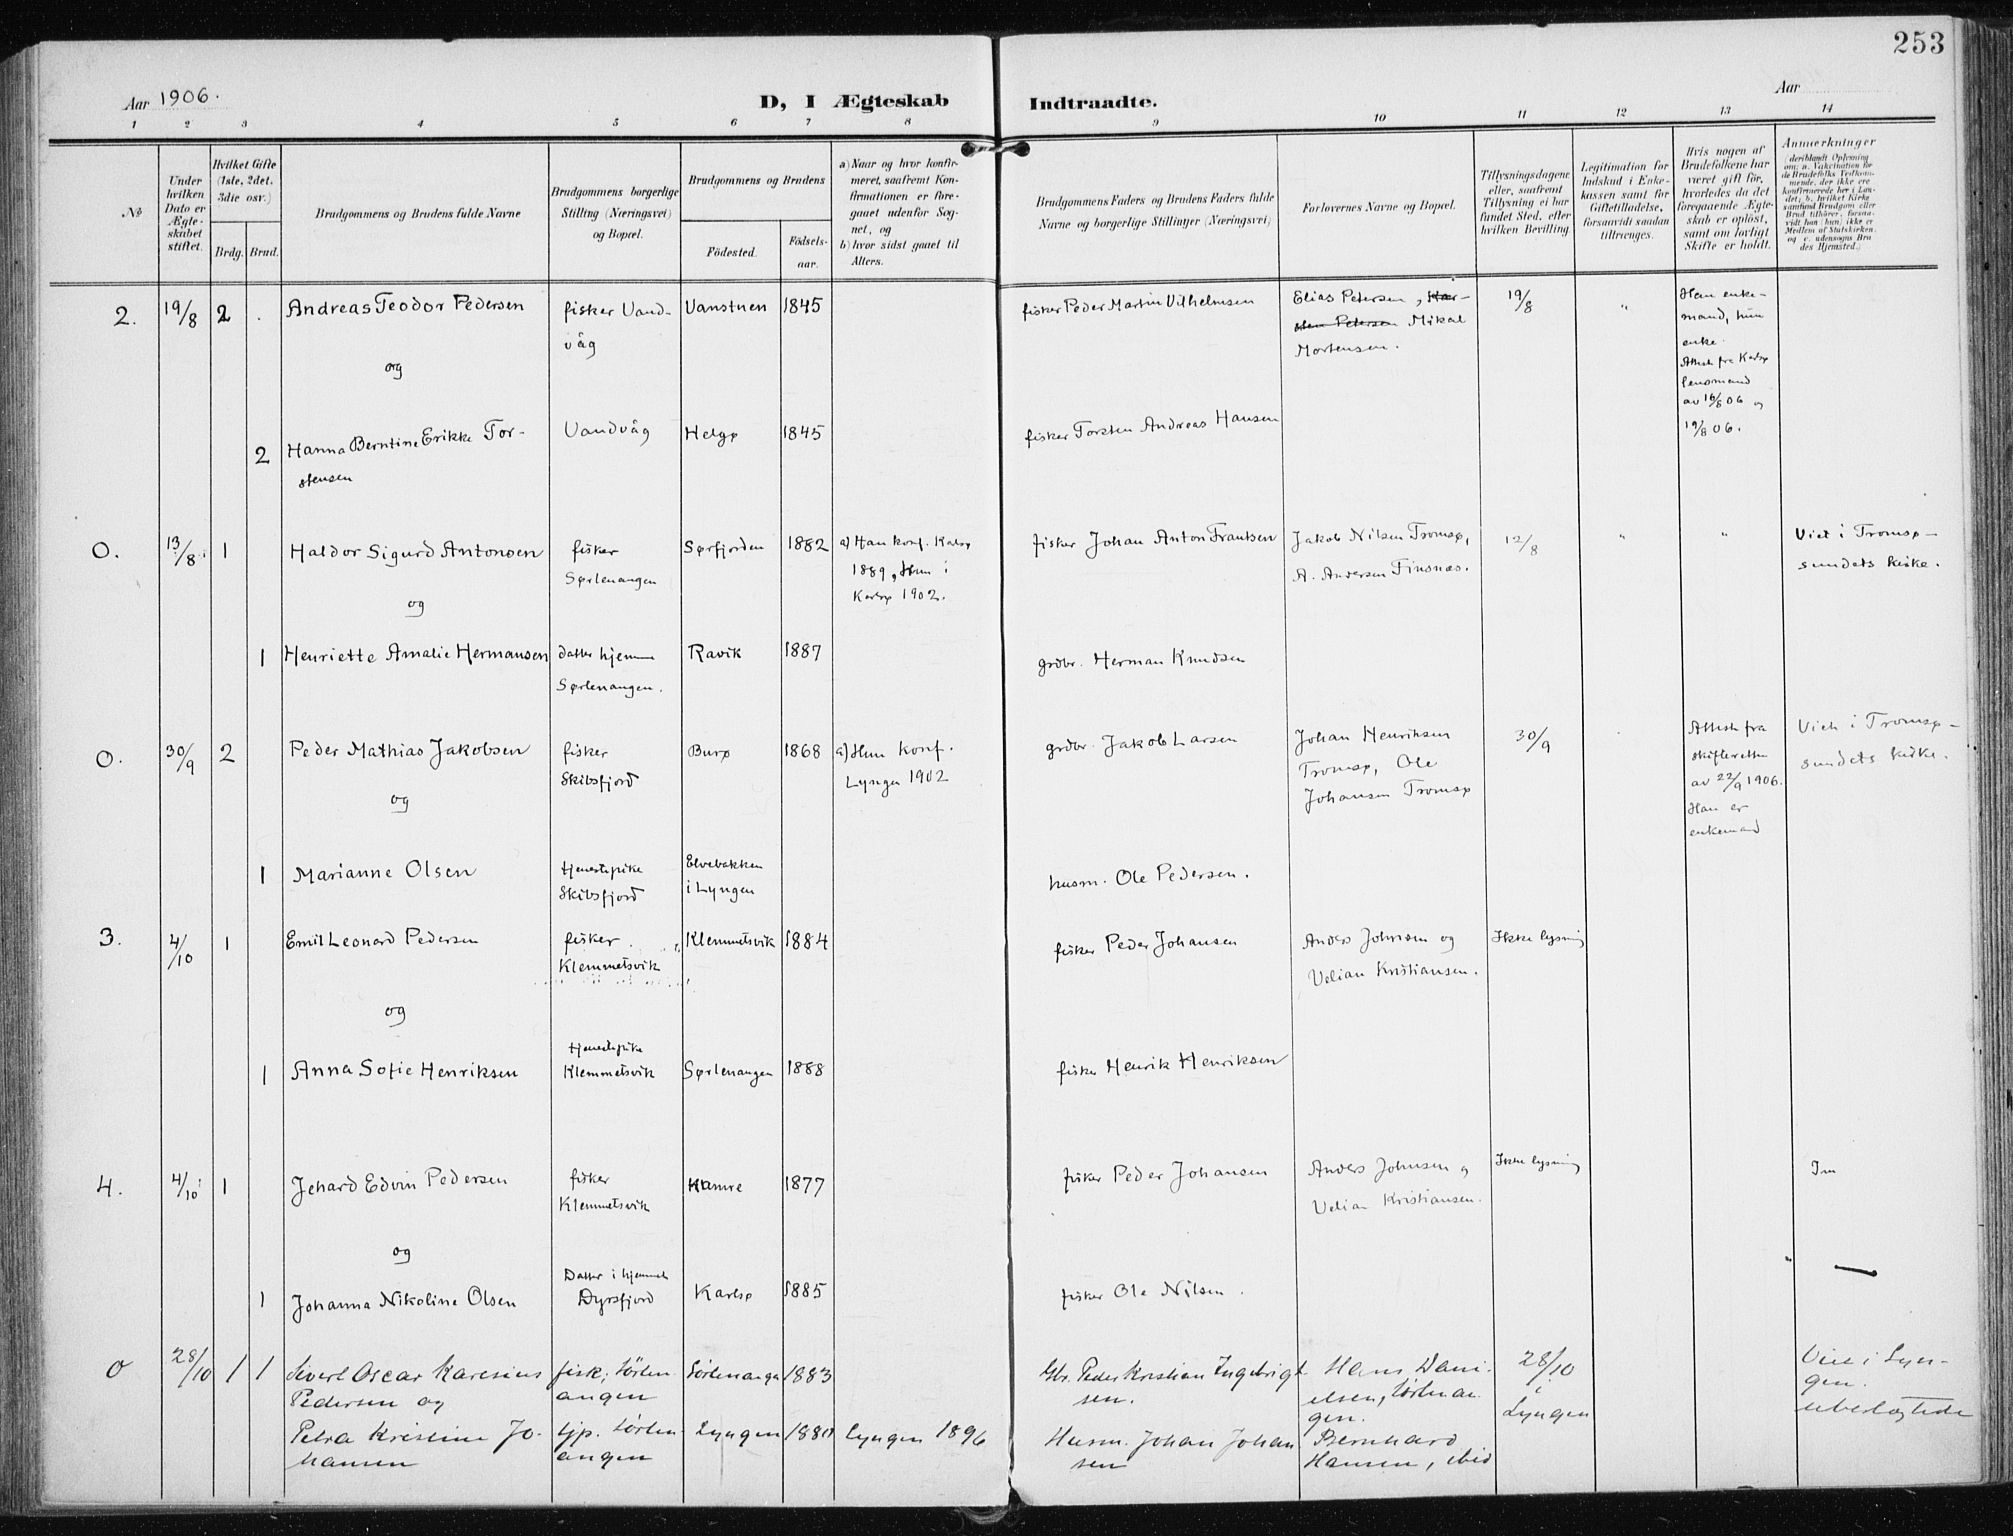 253
Aar 1906.
D, I Ægteskab Indtraadte.
Aar
1 2 3 4 5 6 7 8 9 10 11 12 13 14
No
Under hvilken Dato er Ægteskabet stiftet.
Hvilket Gifte (1ste, 2det, 3die osv.)
Brdg. Brud.
Brudgommens og Brudens fulde Navne
Brudgommens borgerlige Stilling (Næringsvei) og Bopæl.
Brudgommens og Brudens
Födested.
Födselsaar.
a) Naar og hvor konfirmeret, saafremt Konfirmationen er foregaaet udenfor Sognet, og
b) hvor sidst gaaet til Alters.
Brudgommens Faders og Brudens Faders fulde Navne og borgerlige Stillinger (Næringsvei)
Forlovernes Navne og Bopæl.
Tillysningsdagene eller, saafremt Tillysning ei har fundet Sted, efter hvilken Bevilling.
Legitimation for Indskud i Enkekassen samt for Giftetilladelse, forsaavidt saadan tiltrænges.
Hvis nogen af Brudefolkene har været gift för, hvorledes da det foregaaende Ægteskab er oplöst, samt om lovligt Skifte er holdt.
Anmærkninger
(deriblandt Oplysning om: a. Vakcination for de Brudefolks Vedkommende, der ikke ere konfirmerede her i Landet; b. hvilket Kirkesamfund Brudgom eller Brud tilhører, forsaavidt han (hun) ikke er Medlem af Statskirken, og c. udensogns Brudes Hjemsted.)
2. 19/8 2 . Andreas Teodor Pedersen fisker Vand- Vanstuen 1845 fisker Peder Martin Vilhelmsen Elias Petersen, Kar- 19/8 " Han enke-
våg sten Petersen Mikal mand, hun
Mortensen. enke.
og Attest fra Karlsø
lensmand
av 16/8 06 og
19/8 06.
2 Hanna Berntine Erikke Tor- Vandvåg Helgø 1845 fisker Torsten Andreas Hansen
stensen
O. 13/8 1 Haldor Sigurd Antonsen fisker Sørfjorden 1882 a) Han konf. Karlsø fisker Johan Anton Frantsen Jakob Nilsen Tromsø, 12/8 " " Viet i Tromsø-
Sørlenangen 1889, Hun i A. Andersen Finsnæs. sundets kirke.
og Karlsø 1902.
1 Henriette Amalie Hermansen Datter hjemme Ravik 1887 grdbr. Herman Knudsen
Sørlenangen.
O. 30/9 2 Peder Mathias Jakobsen fisker Burø 1868 a) Hun konf. grdbr. Jakob Larsen Johan Henriksen 30/9 Attest fra Viet i Tromsø-
Skibsfjord Lyngen 1902 Tromsø, Ole skifteretten sundets kirke.
og Johansen Tromsø av 22/9 1906.
Han er
enkemand
1 Marianne Olsen tjenestepike Elvebakken husm. Ole Pedersen.
Skibsfjord i Lyngen
3. 4/10 1 Emil Leonard Pedersen fisker Klemmetsvik 1884 fisker Peder Johansen Anders Johnsen og Ikke lysning
Klemmetsvik Velian Kristiansen.
og
1 Anna Sofie Henriksen Tjenestepike Sørlenangen 1888 fisker Henrik Henriksen
Klemmetsvik
4. 4/10 1 Jehard Edvin Pedersen fisker Hamre 1877 fisker Peder Johansen Anders Johnsen og Ikke lysning
Klemmetsvik Velian Kristiansen.
og
1 Johanna Nikoline Olsen Datter i hjemmet Karlsø 1885 fisker Ole Nilsen. " —
Dyrsfjord
O 28/10 1 1 Sivert Oscar Karesius fisk; Sörlen- Sörlenangen 1883 Gbr. Peder Kristian Ingebrigt- Hans Dani- 28/10 Viet i Lyn-
Pedersen og angen sen. elsen, Sörlenan- i gen.
gen. Lyngen
Petra Kristine Jo- tjp. Sörlen- Lyngen Lyngen 1896 Husm. Johan Johan- Bernhard
hansen angen sen Hansen, ibid